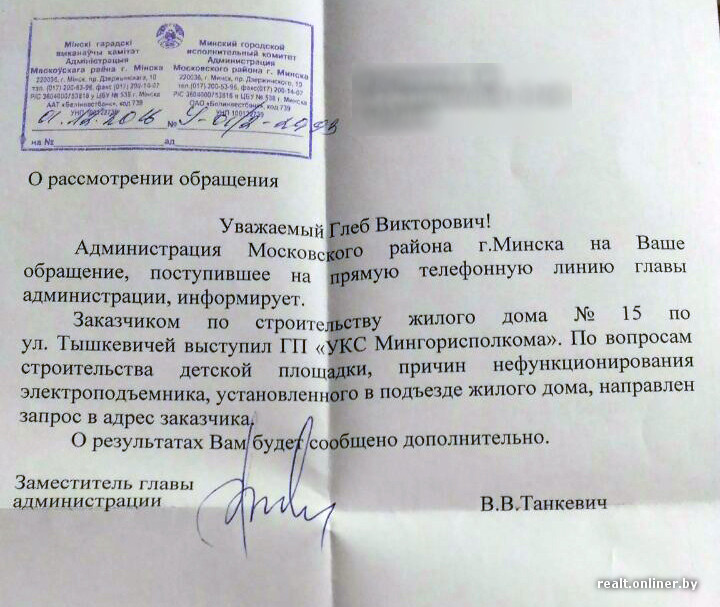 Мінскі гарадскі
выканаўчы камітэт
Адміністрацыя
Маскоўскага раёна г. Мінска
220036, г. Мінск, пр. Дзяржынскага, 10
ААТ «Белінвестбанк», код 739
Минский городской
исполнительный комитет
Администрация
Московского района г. Минска
220036, г. Минск, пр. Дзержинского, 10
ОАО «Белинвестбанк», код 739
01.12.2016 №
на № ад
О рассмотрении обращения
Уважаемый Глеб Викторович!
Администрация Московского района г.Минска на Ваше
обращение, поступившее на прямую телефонную линию главы
администрации, информирует.
Заказчиком по строительству жилого дома № 15 по
ул. Тышкевичей выступил ГП «УКС Мингорисполкома». По вопросам
строительства детской площадки, причин нефункционирования
электроподъемника, установленного в подъезде жилого дома, направлен
запрос в адрес заказчика.
О результатах Вам будет сообщено дополнительно.
Заместитель главы
администрации
В.В.Танкевич
realt.onliner.by